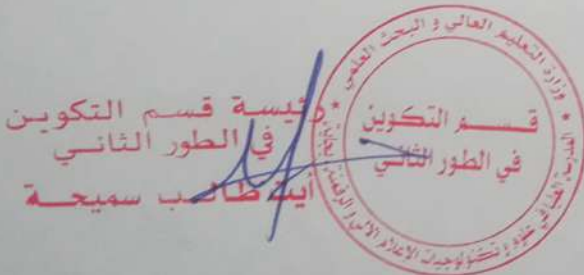 رئيسة قسم التكوين
في الطور الثاني
آية طالب سميحة
وزارة التعليم العالي و البحث العلمي
قسم التكوين
في الطور الثاني
المدرسة العليا في علوم و تكنولوجيات الاعلام الآلي و الرقمنة